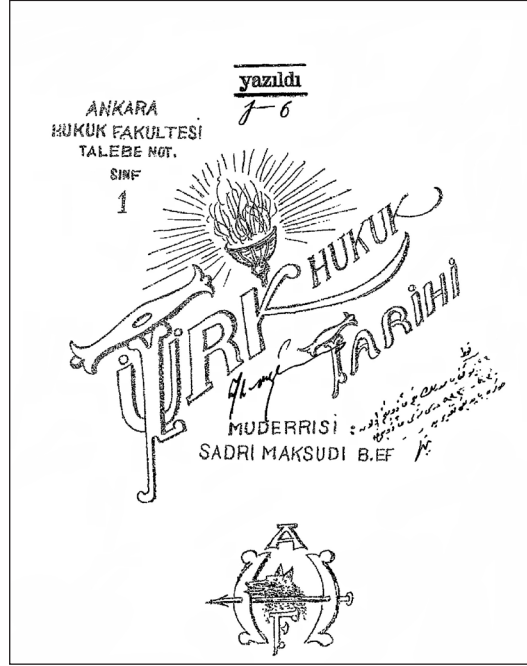 yazıldı
J-6
ANKARA
HUKUK FAKULTESİ
TALEBE NOT.
SINF
1
TÜRK HUKUK
TARİHİ
MUDERRİSİ :
SADRI MAKSUDİ B.EF